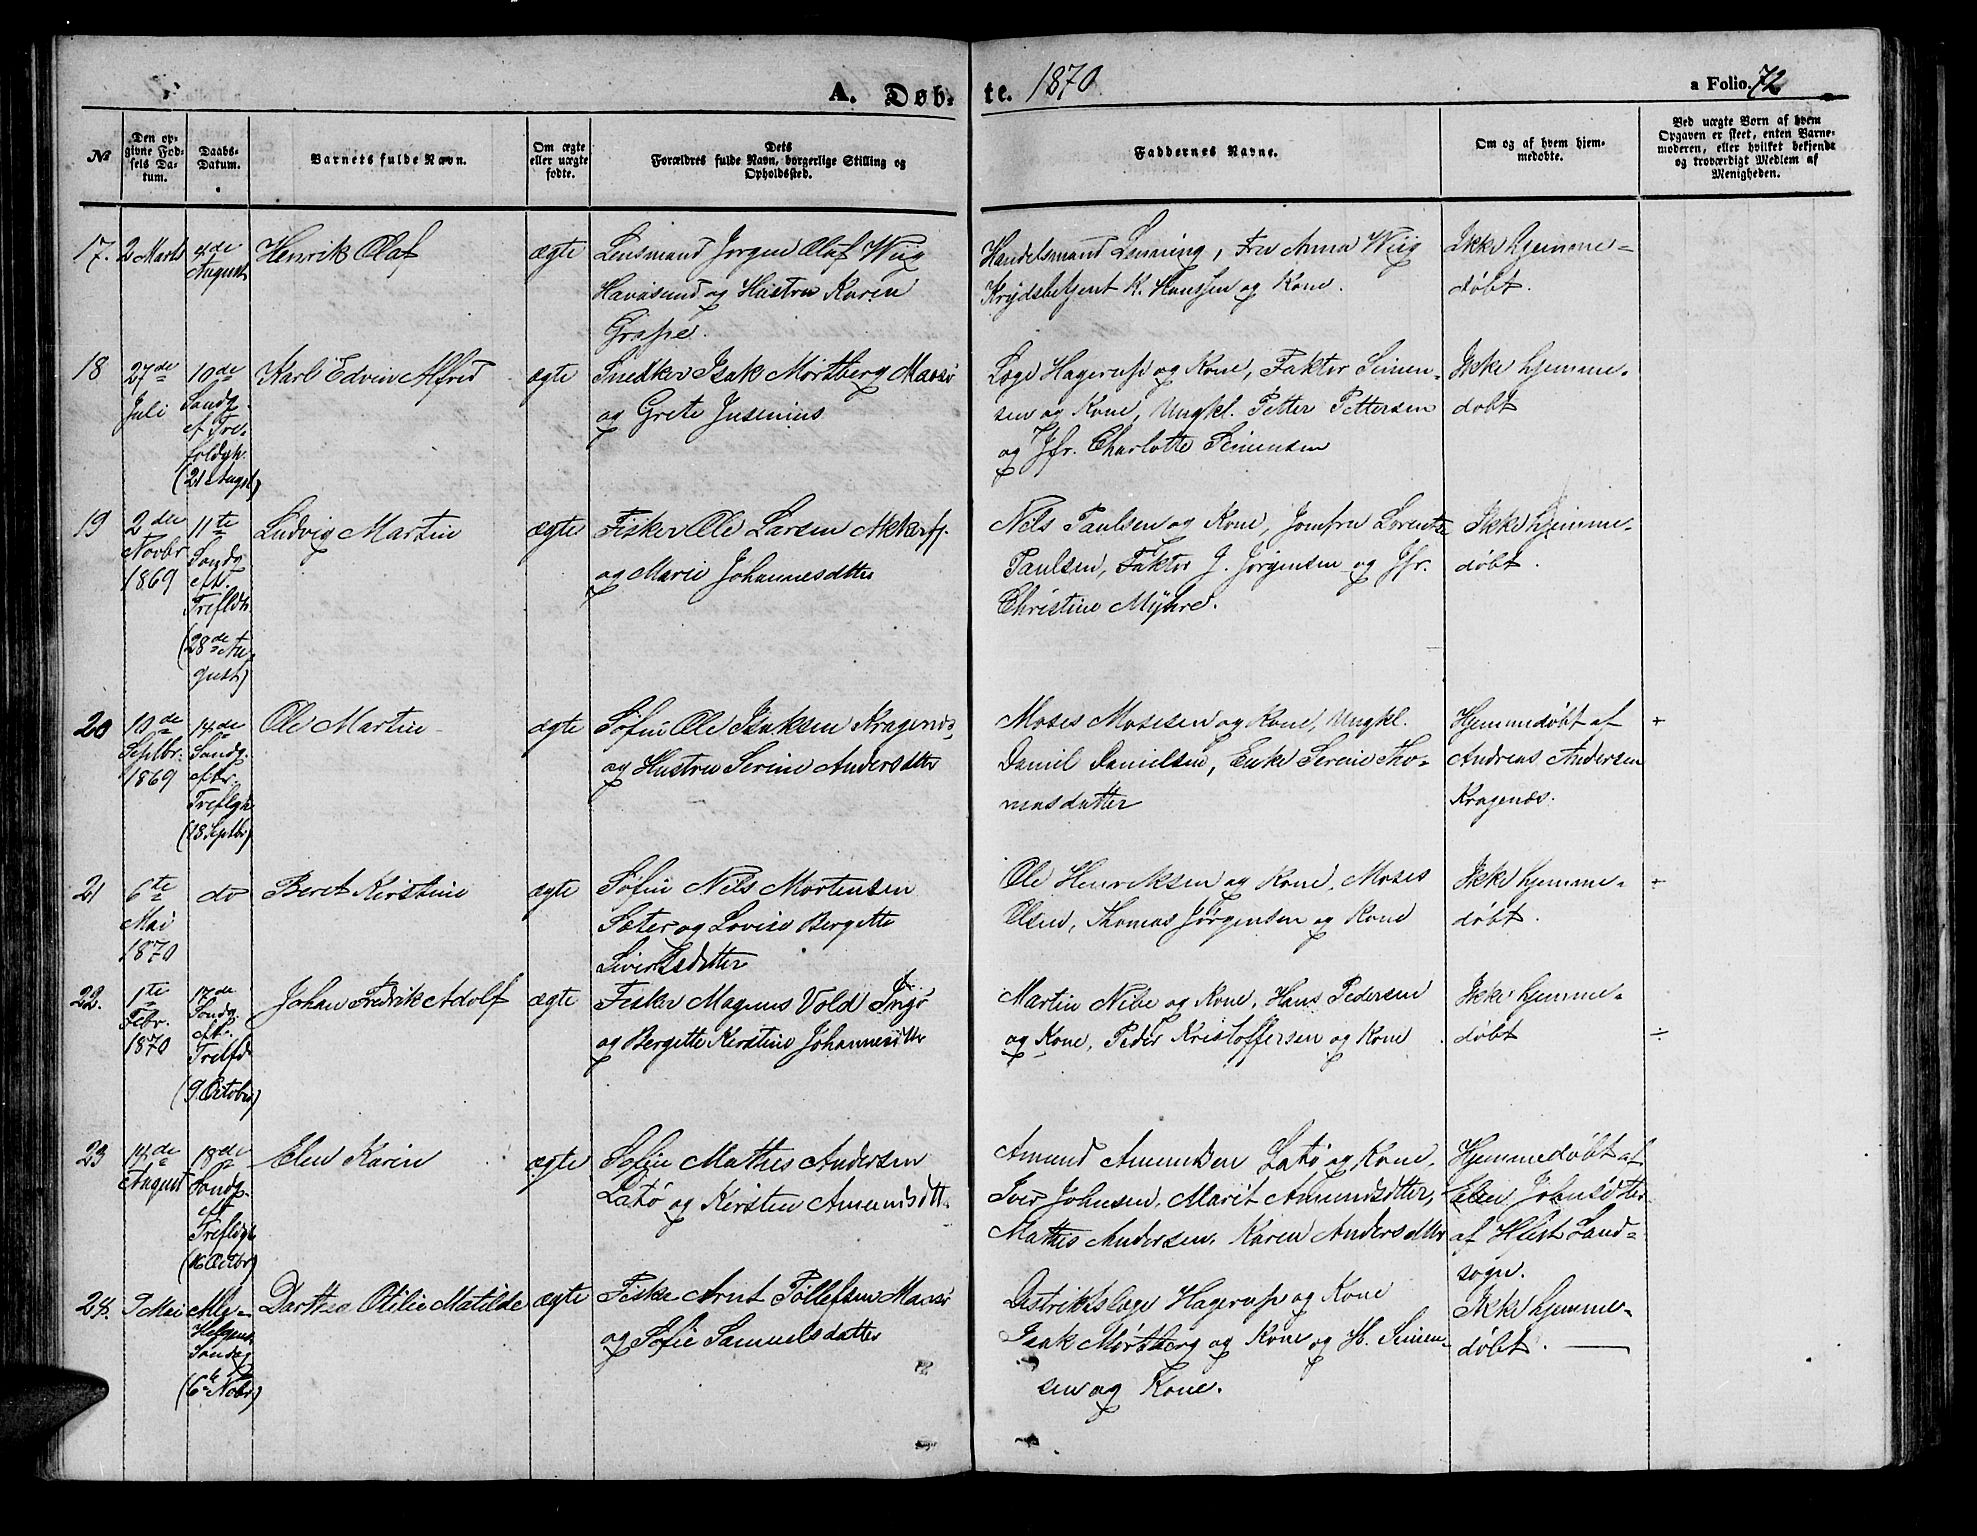 A. Døb- te. 1870
a Folio. 72
№
Den op-
givne Fød-
sels Da-
tum.
Daabs-
Datum.
Barnets fulde Navn.
Om ægte
eller uægte
fødte.
Dets
Forældres fulde Navn, borgerlige Stilling og
Opholdssted.
Faddernes Navne.
Om og af hvem hjem-
medøbte.
Ved uægte Born af hvem
Opgaven er skeet, enten Barne-
moderen, eller hvilket bekjendt
og troværdigt Medlem af
Menigheden.
17. 2 Marts
4de
August
Henrik Olaf
ægte
Lensmand Jørgen Olaf Wiig
Havøsund og Hustru Karen
Grape.
Handelsmand Lønning, Fru Anna Wiig
Krydsbetjent K. Hanssen og Kone.
Ikke hjemme-
døbt.
18
27de
Juli
10de
Søndg.
ef. Tre-
foldgh.
(21 Augst)
Karl Edvin Alfred
ægte
Snedker Isak Mørtberg Maasø
og Grete Jusenius
Læge Hagerup og Kone, Faktor Simen-
sen og Kone, Ungkl. Petter Pettersen
og Jfr. Charlotte Simensen
Ikke hjemme-
døbt
19
2den
Novbr
1869
11te
Søndg
eft.
Trefldh.
(28de Au-
gust)
Ludvig Martin
ægte
Fisker Ole Larsen Akkarfj.
og Marie Johannesdtter
Nils Paulsen og Kone, Jomfru Lorentze
Paulsen, Faktor J. Jørgensen og Jfr.
Christine Myhre.
Ikke hjemme-
døbt.
20
10de
Septbr.
1869
14de
Søndg.
eftr.
Treflgh
(18 Septbr)
Ole Martin
ægte
Søfin Ole Isaksen Kragenæs,
og Hustru Serine Andersdtter
Moses Mosesen og Kone, Ungkl.
Daniel Danielsen, Enke Serine Tho-
masdatter
Hjemmedøbt af
Andreas Andersen
Kragenæs.
+
21
6te
Mai
1870
do
Beret Kirstine
ægte
Søfin Nils Mortensen
Sæter og Lovise Bergette
Sivertsdtter
Ole Henriksen og Kone, Moses
Olsen, Thomas Jørgensen og Kone
Ikke hjemme-
døbt.
+
22.
1te
Febr.
1870
17de
Søndg.
eft.
Trelfd
(9 Octobr)
Johan Fredrik Adolf
ægte
Fisker Magnus Vold Ingø
og Bergette Kirstine Johannesdtter
Martin Nibe og Kone, Hans Pedersen
og Kone, Peder Kristoffersen og Kone
Ikke hjemme-
døbt
÷
23
14de
August
18de
Søndg.
eft
Trefldgh
(16 Octbr)
Elen Karin
ægte
Søfin Mathis Andersen
Latø og Kirsten Amundsdtt.
Amund Amundsen Latø og Kone,
Iver Johnsen, Marit Amundsdtter,
Mathis Andersen, Karen Andersdtter
Hjemmedøbt af
Elen Johnsdtter
af Hfest Land-
sogn.
24.
7 Mai
Alle-
Helgens
Søndag
(6te Nobr)
Dorthea Otilie Matilde
ægte
Fisker Arnt Tollefsen Maasø
og Sofie Samuelsdatter
Distriktslæge Hagerup og Kone
Isak Mørtberg og Kone og H. Simen-
sen og Kone.
Ikke hjemme-
døbt.